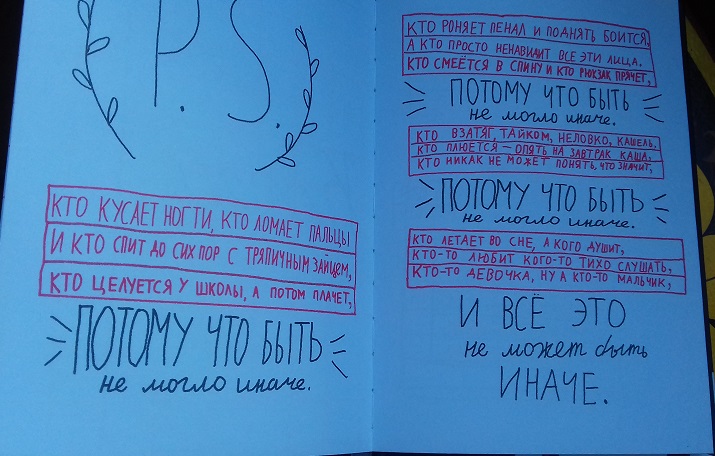 P.S.
КТО КУСАЕТ НОГТИ, КТО ЛОМАЕТ ПАЛЬЦЫ
И КТО СПИТ ДО СИХ ПОР С ТРЯПИЧНЫМ ЗАЙЦЕМ,
КТО ЦЕЛУЕТСЯ У ШКОЛЫ, А ПОТОМ ПЛАЧЕТ,
ПОТОМУ ЧТО БЫТЬ
не могло иначе.
КТО РОНЯЕТ ПЕНАЛ И ПОДНЯТЬ БОИТСЯ,
А КТО ПРОСТО НЕНАВИДИТ ВСЕ ЭТИ ЛИЦА.
КТО СМЕЁТСЯ В СПИНУ И КТО РЮКЗАК ПРЯЧЕТ,
ПОТОМУ ЧТО БЫТЬ
не могло иначе.
КТО ВЗАТЯГ, ТАЙКОМ, НЕЛОВКО, КАШЕЛЬ,
КТО ПЛЮЁТСЯ – ОПЯТЬ НА ЗАВТРАК КАША,
КТО НИКАК НЕ МОЖЕТ ПОНЯТЬ, ЧТО ЗНАЧИТ,
ПОТОМУ ЧТО БЫТЬ
не могло иначе.
КТО ЛЕТАЕТ ВО СНЕ, А КОГО ДУШИТ,
КТО-ТО ЛЮБИТ КОГО-ТО ТИХО СЛУШАТЬ,
КТО-ТО ДЕВОЧКА, НУ А КТО-ТО МАЛЬЧИК,
И ВСЁ ЭТО
не может быть
ИНАЧЕ.